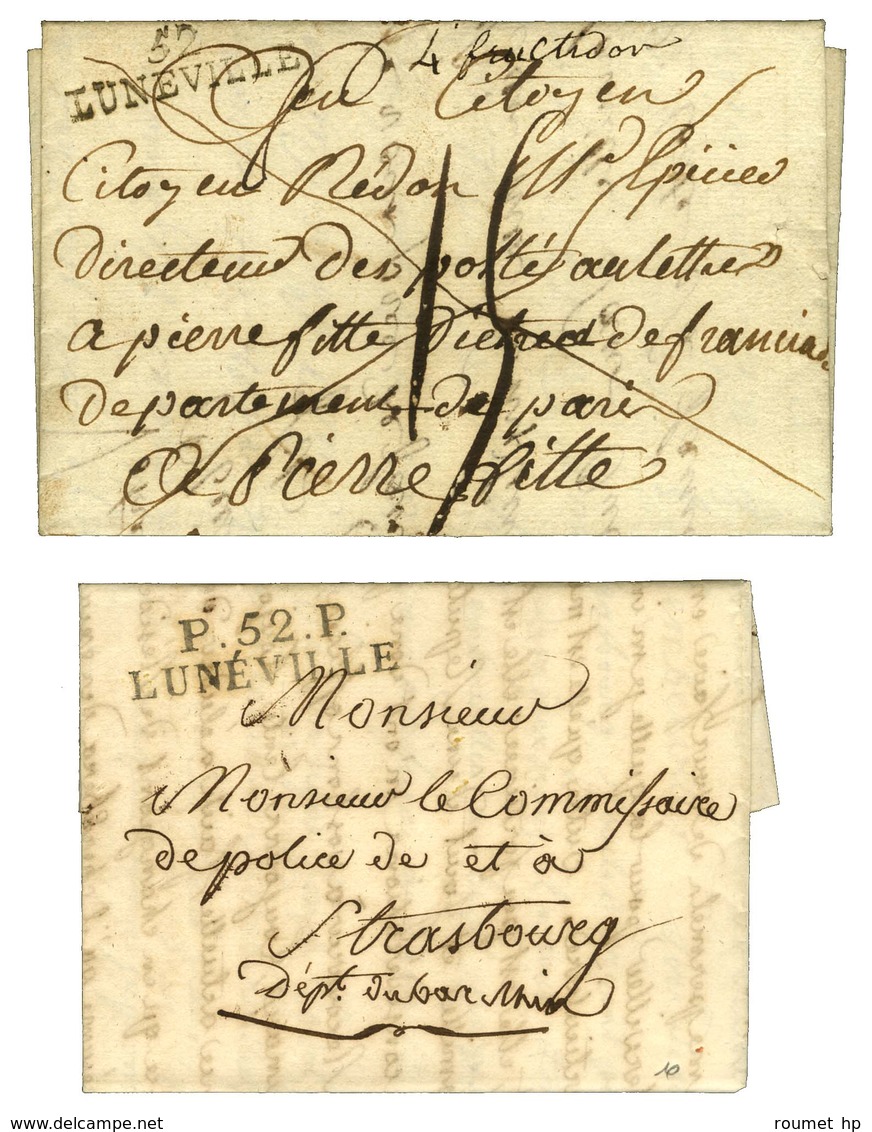 52
LUNÉVILLE
4 fructidor
Citoyen
Citoyen Redon Md Epicier
directeur des posté aulettre
a pierre fitte district de franciade
departement de paris
a Pierre fitte
15
P.52.P.
LUNÉVILLE
Monsieur
Monsieur le Commissaire
de police de et à
Strasbourg
Dépt. du bas Rhin
10
roumet hp